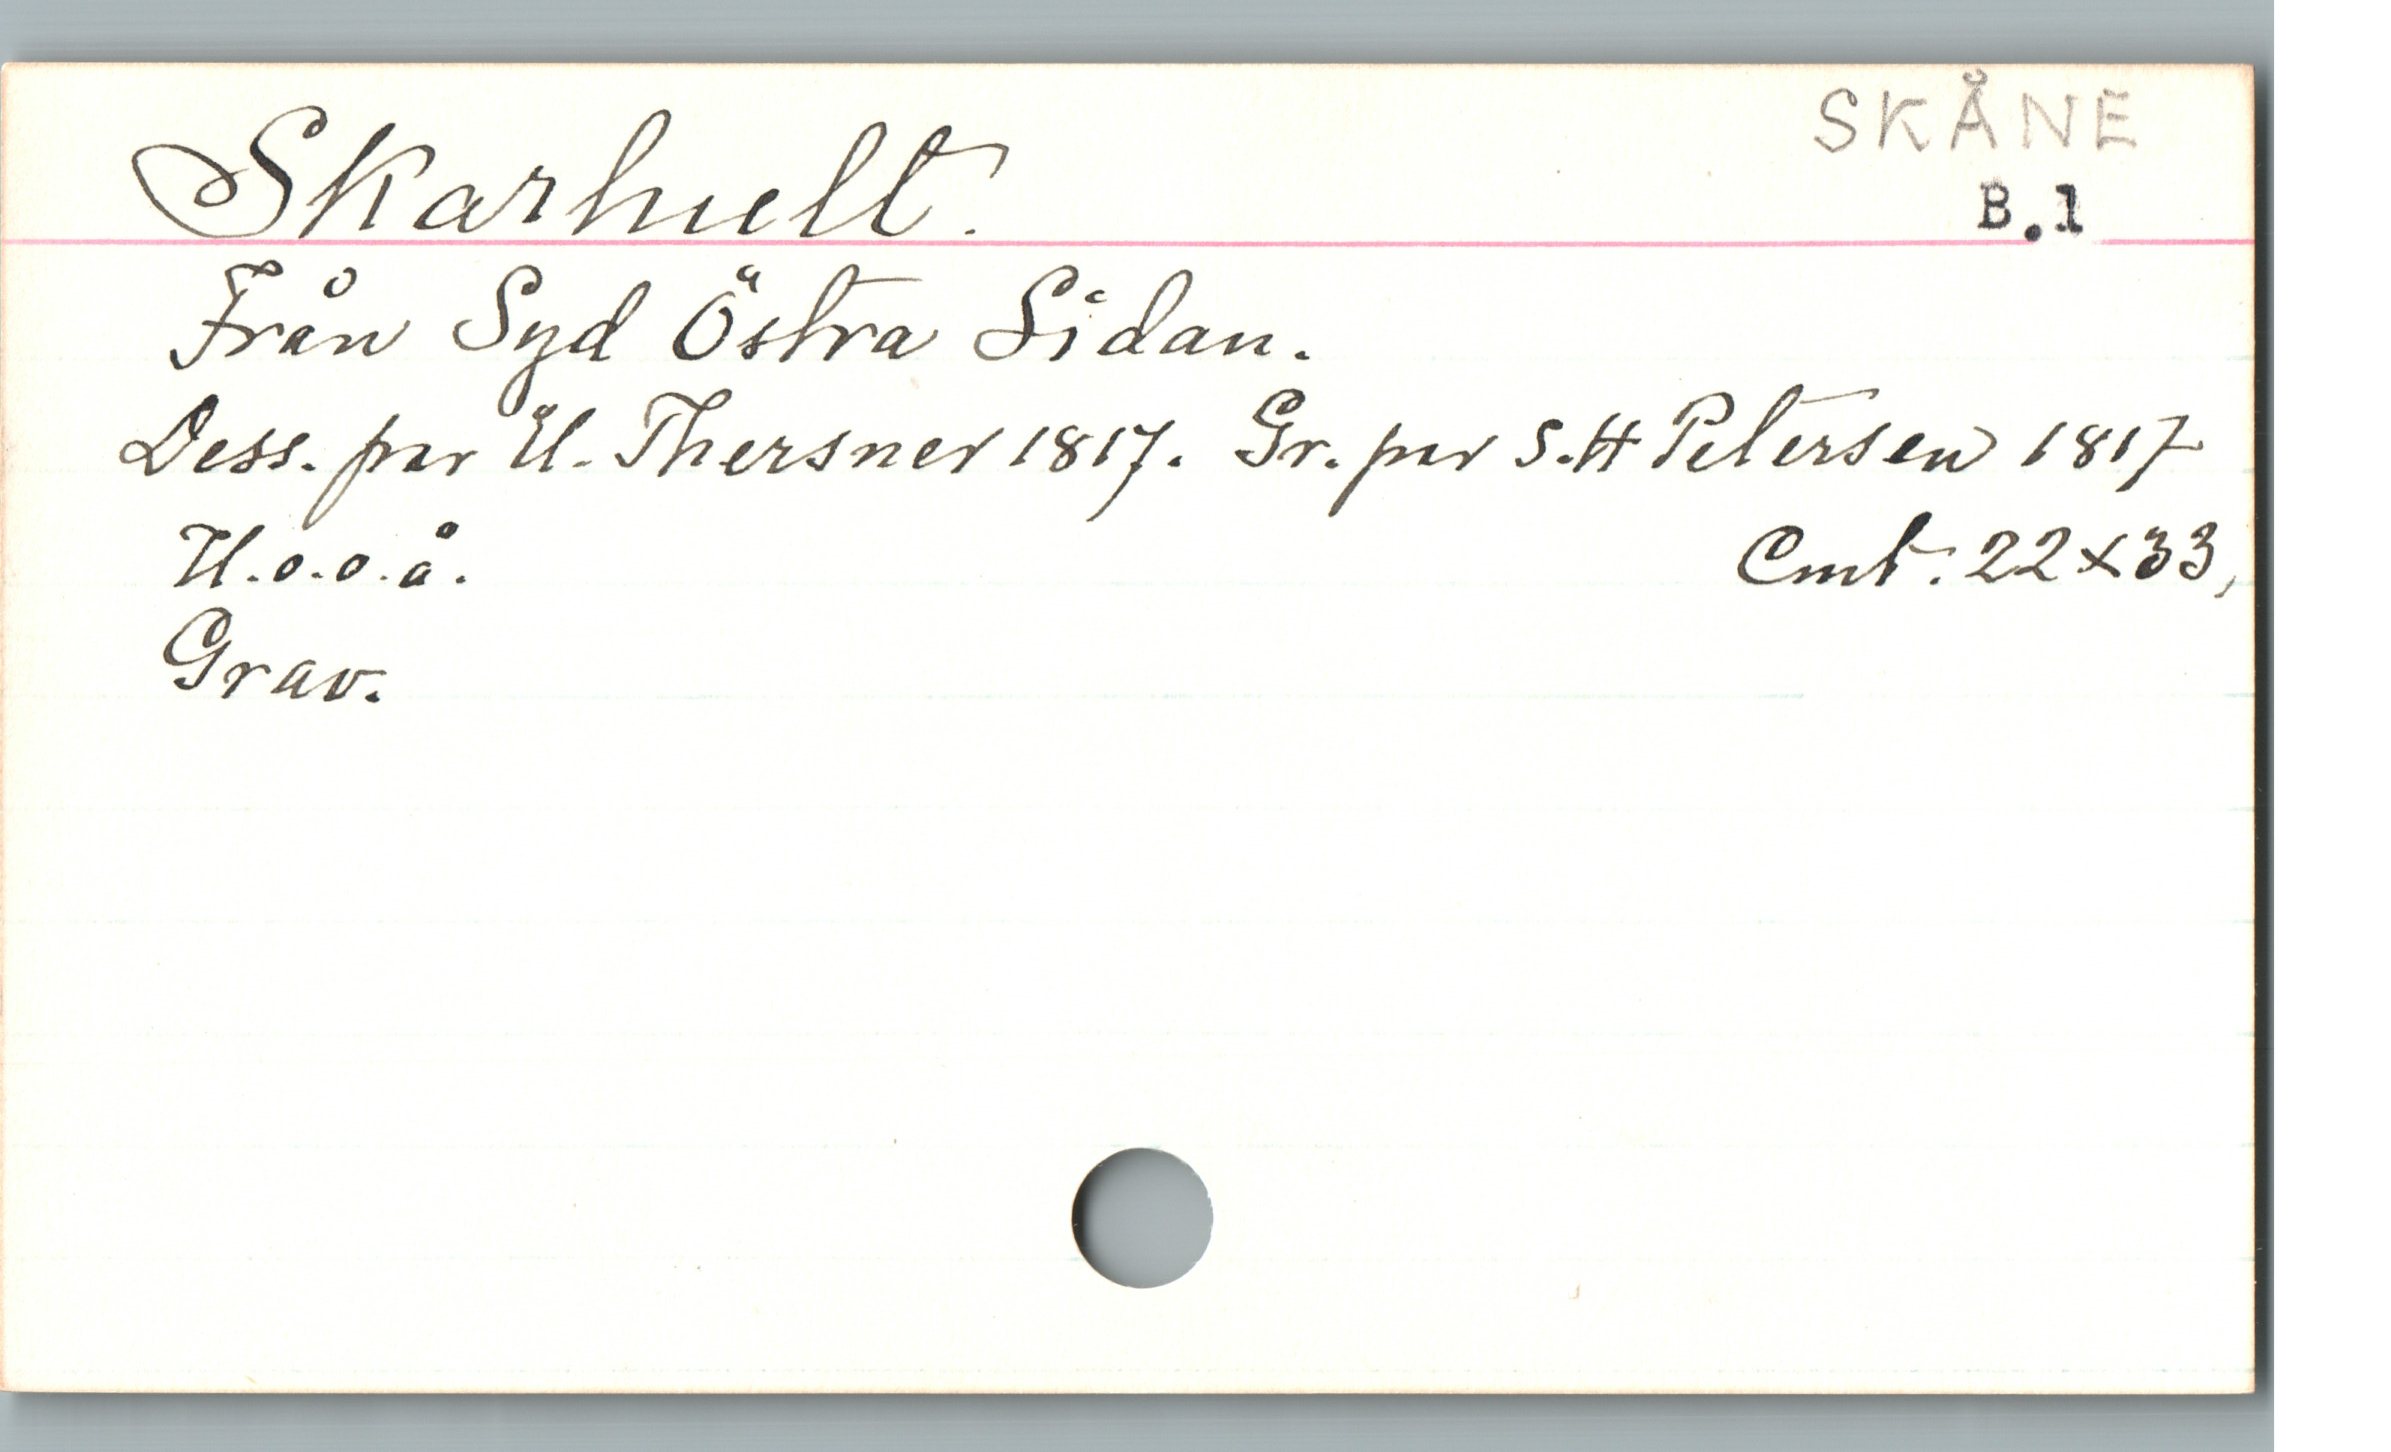 SKÅNE
Skarhult.
B.1
Från Syd Östra Sidan.
Dess. par U. Thersner 1817. Gr. par S.H Petersen 1817
U.o.o.å.
Cmt. 22x33,
Grav.